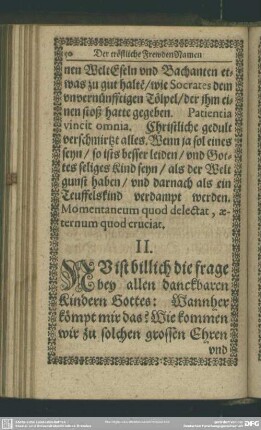 Der tröstliche Frewden Namen
nen WeltEseln vnd Bachanten et-
was zu gut haltē/ wie Socrates dem
vnvernünfftigen Tölpel/ der ihm ei-
nen stoß hatte gegeben. Patientia
vincit omnia. Christliche gedult
verschmirtzt alles. Wenn ja sol eines
seyn/ so ists besser leiden/ vnd Got-
tes seliges Kind seyn/ als der Welt
gunst haben/ vnd darnach als ein
Teuffelskind verdampt werden.
Momentaneum quod delectat, æ-
ternum quod cruciat.
II.
NV ist billich die frage
bey allen danckbaren
Kindern Gottes: Wannher
kömpt mir das? Wie kommen
wir zu solchen grossen Ehren
vnd
DFG